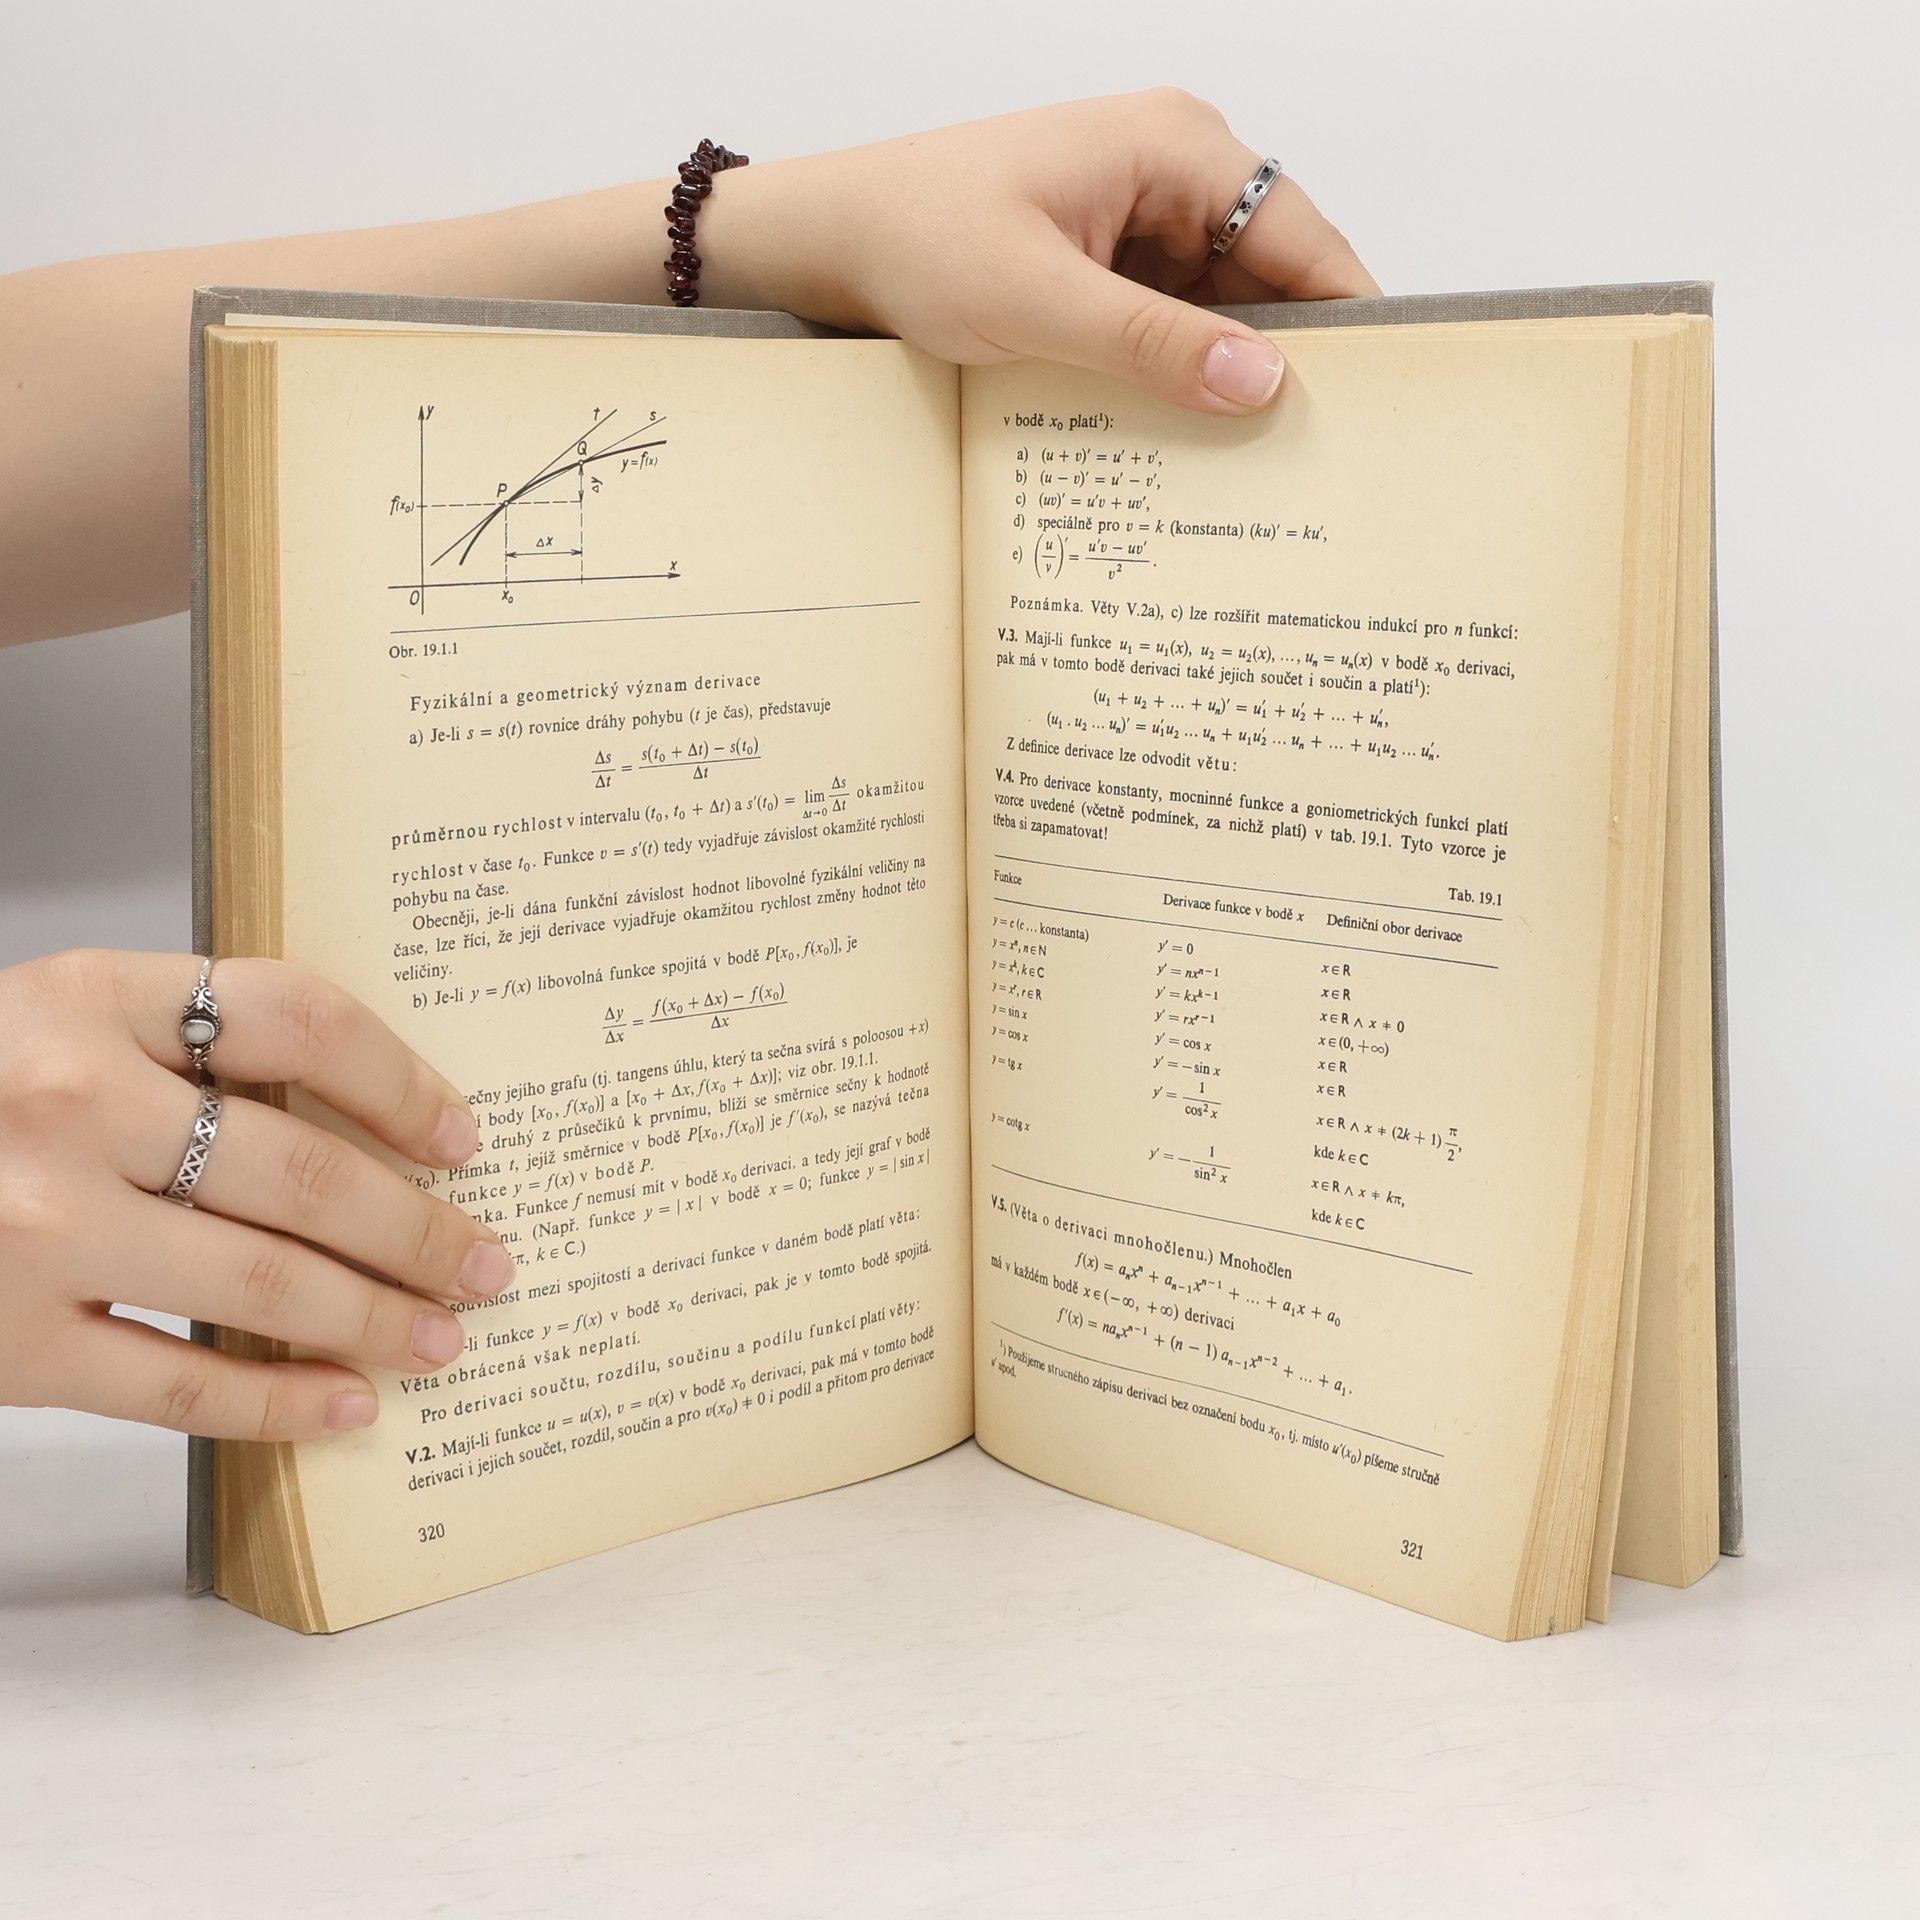 y
t
s
Q
y=f(x)
P
Δy
f(x₀)
Δx
x
O
x₀
Obr. 19.1.1
Fyzikální a geometrický význam derivace
a) Je-li s = s(t) rovnice dráhy pohybu (t je čas), představuje
Δs/Δt = (s(t₀ + Δt) − s(t₀))/Δt
průměrnou rychlost v intervalu (t₀, t₀ + Δt) a s′(t₀) = lim_{Δt→0} Δs/Δt okamžitou
rychlost v čase t₀. Funkce v = s′(t) tedy vyjadřuje závislost okamžité rychlosti
pohybu na čase.
Obecněji, je-li dána funkční závislost hodnot libovolné fyzikální veličiny na
čase, lze říci, že její derivace vyjadřuje okamžitou rychlost změny hodnot této
veličiny.
b) Je-li y = f(x) libovolná funkce spojitá v bodě P[x₀, f(x₀)], je
Δy/Δx = (f(x₀ + Δx) − f(x₀))/Δx
sečny jejího grafu (tj. tangens úhlu, který ta sečna svírá s poloosou +x)
body [x₀, f(x₀)] a [x₀ + Δx, f(x₀ + Δx)]; viz obr. 19.1.1.
druhý z průsečíků k prvnímu, blíží se směrnice sečny k hodnotě
(x₀). Přímka t, jejíž směrnice v bodě P[x₀, f(x₀)] je f′(x₀), se nazývá tečna
funkce y = f(x) v bodě P.
Funkce f nemusí mít v bodě x₀ derivaci, a tedy její graf v bodě
(Např. funkce y = |x| v bodě x = 0; funkce y = |sin x|
kπ, k ∈ C.)
souvislost mezi spojitostí a derivací funkce v daném bodě platí věta:
-li funkce y = f(x) v bodě x₀ derivaci, pak je v tomto bodě spojitá.
Věta obrácená však neplatí.
Pro derivaci součtu, rozdílu, součinu a podílu funkcí platí věty:
V.2. Mají-li funkce u = u(x), v = v(x) v bodě x₀ derivaci, pak má v tomto bodě
derivaci i jejich součet, rozdíl, součin a pro v(x₀) ≠ 0 i podíl a přitom pro derivace
320
v bodě x₀ platí¹):
a) (u + v)′ = u′ + v′,
b) (u − v)′ = u′ − v′,
c) (uv)′ = u′v + uv′,
d) speciálně pro v = k (konstanta) (ku)′ = ku′,
e) (u/v)′ = (u′v − uv′)/v².
Poznámka. Věty V.2a), c) lze rozšířit matematickou indukcí pro n funkcí:
V.3. Mají-li funkce u₁ = u₁(x), u₂ = u₂(x), ..., uₙ = uₙ(x) v bodě x₀ derivaci,
pak má v tomto bodě derivaci také jejich součet i součin a platí¹):
(u₁ + u₂ + ... + uₙ)′ = u₁′ + u₂′ + ... + uₙ′,
(u₁ . u₂ ... uₙ)′ = u₁′u₂ ... uₙ + u₁u₂′ ... uₙ + ... + u₁u₂ ... uₙ′.
Z definice derivace lze odvodit větu:
V.4. Pro derivace konstanty, mocninné funkce a goniometrických funkcí platí
vzorce uvedené (včetně podmínek, za nichž platí) v tab. 19.1. Tyto vzorce je
třeba si zapamatovat!
Tab. 19.1
Funkce Derivace funkce v bodě x Definiční obor derivace
y = c (c ... konstanta) y′ = 0 x ∈ R
y = xⁿ, n ∈ N y′ = nxⁿ⁻¹ x ∈ R
y = xᵏ, k ∈ C y′ = kxᵏ⁻¹ x ∈ R ∧ x ≠ 0
y = xʳ, r ∈ R y′ = rxʳ⁻¹ x ∈ (0, +∞)
y = sin x y′ = cos x x ∈ R
y = cos x y′ = −sin x x ∈ R
y = tg x y′ = 1/cos² x x ∈ R ∧ x ≠ (2k + 1) π/2,
kde k ∈ C
y = cotg x y′ = −1/sin² x x ∈ R ∧ x ≠ kπ,
kde k ∈ C
V.5. (Věta o derivaci mnohočlenu.) Mnohočlen
f(x) = aₙxⁿ + aₙ₋₁xⁿ⁻¹ + ... + a₁x + a₀
má v každém bodě x ∈ (−∞, +∞) derivaci
f′(x) = naₙxⁿ⁻¹ + (n − 1) aₙ₋₁xⁿ⁻² + ... + a₁.
¹) Použijeme stručného zápisu derivací bez označení bodu x₀, tj. místo u′(x₀) píšeme stručně
u′ apod.
321